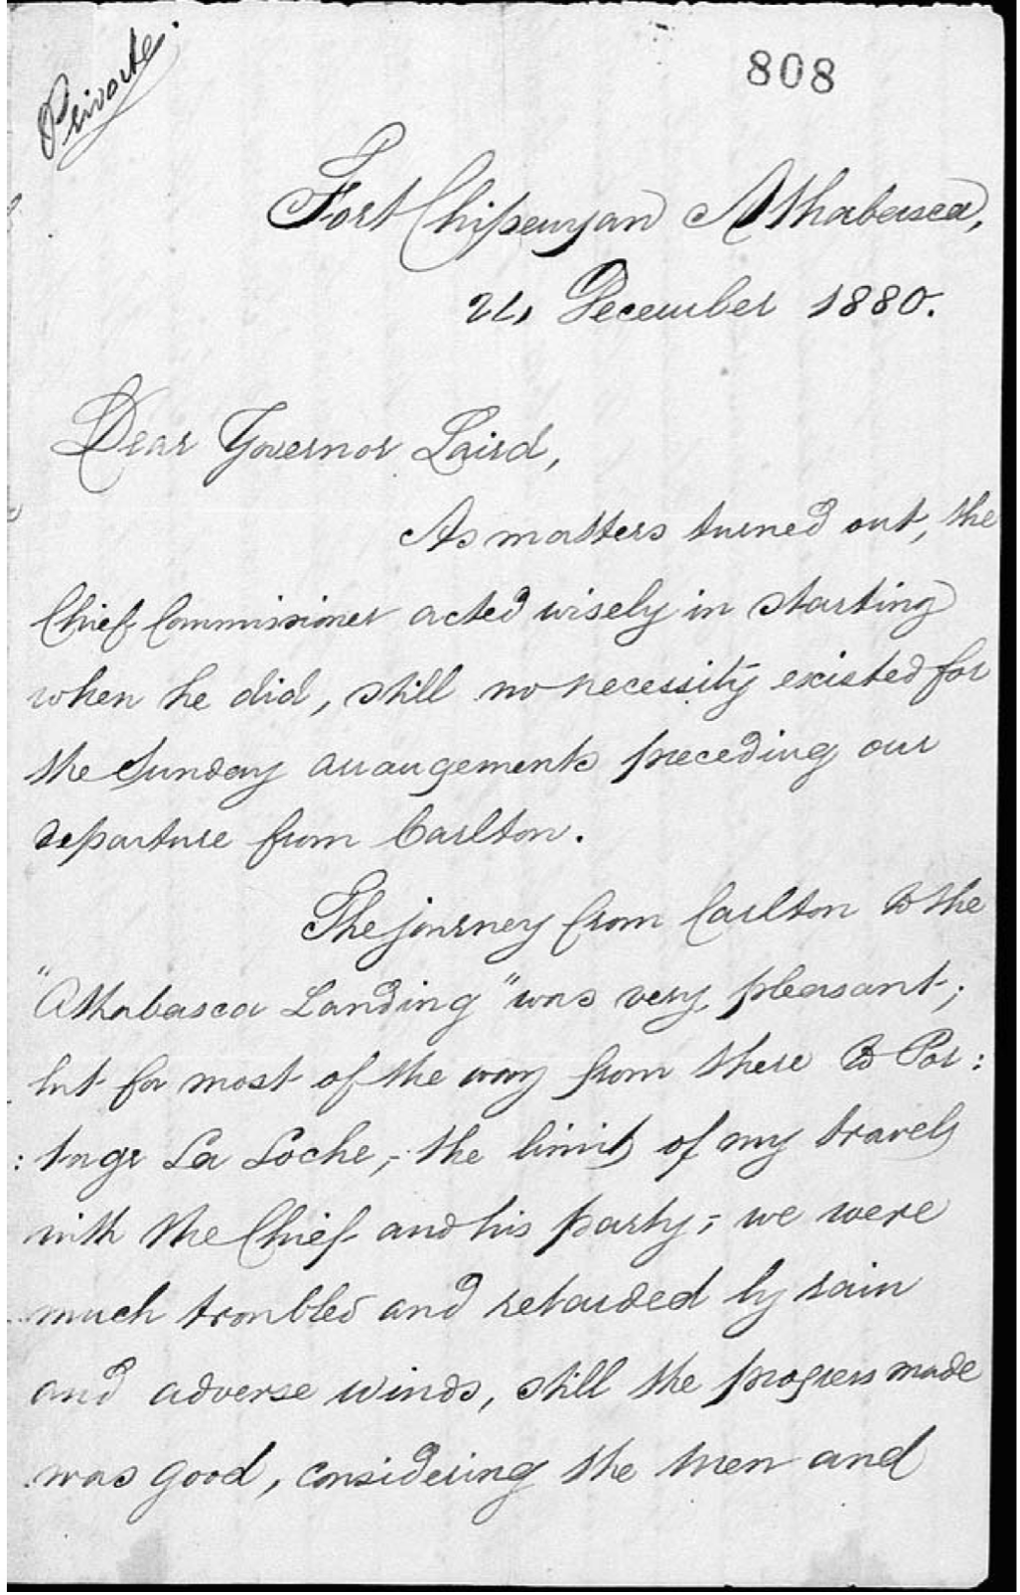 Private.
808
Fort Chipewyan Athabasca,
December 1880.
Dear Governor Laird,
As matters turned out, the
Chief Commissioner acted wisely in starting
when he did, still no necessity existed for
the Sunday arrangements preceding our
departure from Carlton.
The journey from Carlton to the
"Athabasca Landing" was very pleasant;
but for most of the way from there to Por:
:tage La Loche, - the limit of my travels
with the Chief and his party, - we were
much troubled and retarded by rain
and adverse winds, still the progress made
was good, considering the men and